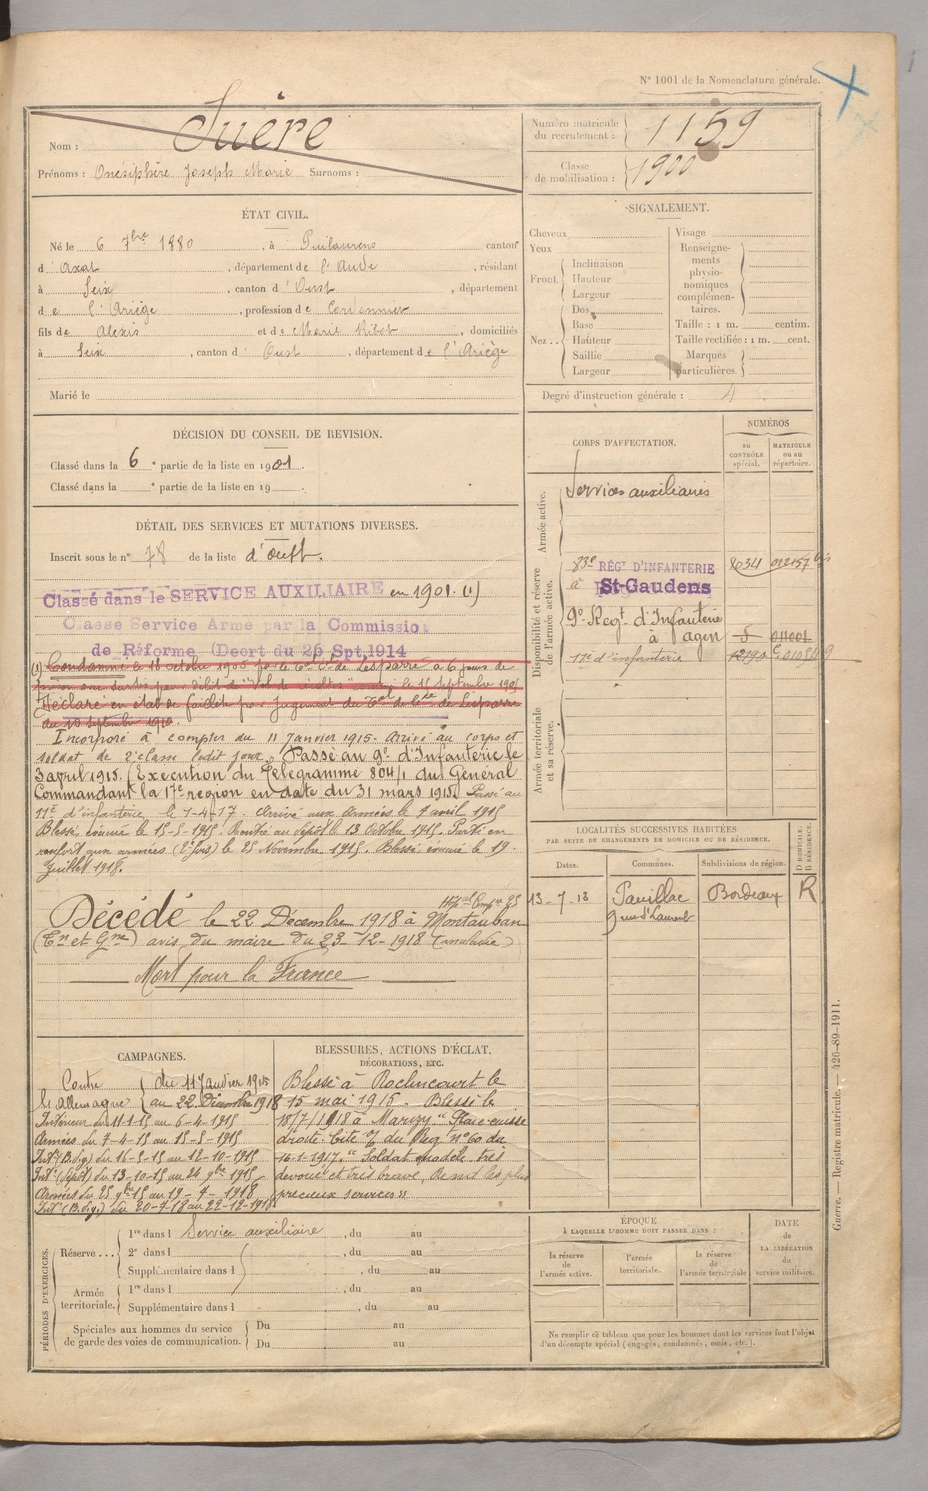 N° 1001 de la Nomenclature générale.
Nom : Suère
Prénoms : Onésiphère Joseph Marie Surnoms :
Numéro matricule du recrutement : 1159
Classe de mobilisation : 1900
ÉTAT CIVIL.
Né le 6 7bre 1880, à Puilaurens canton
d'Axat, département de l'Aude, résidant
à Seix, canton d'Oust, département
de l'Ariège, profession de Cordonnier
fils de Alexis et de Marie Ribot, domiciliés
à Seix, canton d'Oust, département de l'Ariège
Marié le
SIGNALEMENT.
Cheveux
Yeux
Front. Inclinaison
Hauteur
Largeur
Nez.. Dos
Base
Hauteur
Saillie
Largeur
Visage
Renseigne-
ments
physio-
nomiques
complémen-
taires.
Taille : 1 m. centim.
Taille rectifiée : 1 m. cent.
Marques
particulières.
Degré d'instruction générale : 4
DÉCISION DU CONSEIL DE REVISION.
Classé dans la 6e partie de la liste en 1901.
Classé dans la e partie de la liste en 19
DÉTAIL DES SERVICES ET MUTATIONS DIVERSES.
Inscrit sous le n° 78 de la liste d'oust.
Classé dans le SERVICE AUXILIAIRE en 1901. (1)
Classé Service Armé par la Commission
de Réforme (Décret du 26 Spt. 1914
(1) Condamné le 18 octobre 190 par le Cel Con de Lesparre à 6 jours de
prison avec sursis pour délit de "Vol de récoltes" commis le 15 septembre 190
Déclaré en état de faillite par jugement du Tal de Cce de Lesparre
du 10 septembre 1910.
Incorporé à compter du 11 janvier 1915. Arrivé au corps et
soldat de 2e classe ledit jour. Passé au 9e d'Infanterie le
3 april 1915. (Execution du Télégramme 804/1 du Général
Commandant la 17e region en date du 31 mars 1915). Passé au
11e d'infanterie le 1-4-17. Arrivé aux Armées le 7 avril 1915
Blessé, évacué le 15-5-1915. Rentré au dépôt le 13 Octobre 1915. Parti en
renfort aux armées (2e fois) le 25 Novembre 1915. Blessé évacué le 19
Juillet 1918.
Hôpal Compre 25
Décédé le 22 Décembre 1918 à Montauban
(Tn et Gne) avis du maire du 23-12-1918 (maladie)
Mort pour la France
CORPS D'AFFECTATION.
NUMÉROS
au CONTRÔLE spécial.
MATRICULE ou au répertoire.
Armée active.
Services auxiliaires
Disponibilité et réserve de l'armée active.
83e RÉGt D'INFANTERIE 8034 012157 bis
à St-Gaudens
9e Regt d'Infanterie
à agen 5 011001
11e d'infanterie 12190
Armée territoriale et sa réserve.
LOCALITÉS SUCCESSIVES HABITÉES
PAR SUITE DE CHANGEMENTS DE DOMICILE OU DE RÉSIDENCE.
Dates. Communes. Subdivisions de région. D DOMICILE. R RÉSIDENCE.
13-7-13 Pauillac Bordeaux R
9 rue St Laurent
CAMPAGNES.
Contre l'allemagne du 11 Janvier 1915
au 22 Décembre 1918
Intérieur du 11-1-15 au 6-4-1915
Armées du 7-4-15 au 15-5-1915
Intr (B. de g.) du 16-5-15 au 12-10-1915
Intr (dépôt) du 13-10-15 au 24 9bre 1915
Armées du 25 9bre 15 au 19-7-1918
Intr (B. de g.) du 20-7-18 au 22-12-1918
BLESSURES, ACTIONS D'ÉCLAT,
DÉCORATIONS, ETC.
Blessé à Roclincourt le
15 mai 1915. Blessé le
18/7/1918 à Marizy "Plaie cuisse
droite. Cité o/ du Reg n° 60 du
16-1-1917. "Soldat modèle très
dévoué et très brave, Rend les plus
précieux services"
PÉRIODES D'EXERCICES.
Réserve... 1re dans l Service auxiliaire, du au
2e dans l, du au
Supplémentaire dans l, du au
Armée territoriale. 1re dans l, du au
Supplémentaire dans l, du au
Spéciales aux hommes du service
de garde des voies de communication.
Du au
Du au
ÉPOQUE
À LAQUELLE L'HOMME DOIT PASSER DANS :
la réserve de l'armée active.
l'armée territoriale.
la réserve de l'armée territoriale
DATE
de
LA LIBÉRATION
du
service militaire.
Ne remplir ce tableau que pour les hommes dont les services font l'objet
d'un décompte spécial (engagés, condamnés, omis, etc.).
Guerre. — Registre matricule. — 426-89-1911.